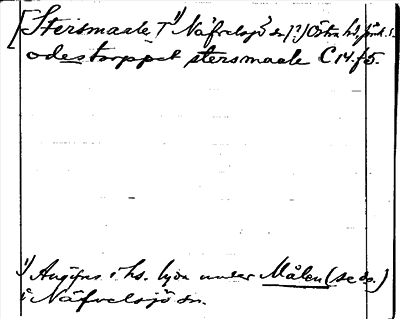 [Stersmaale T¹⁾ Näfvelsjö sn [?] Östra hd,
odestorppet stersmaale C 14. f 5.
¹⁾ Angifves i hs. lyda under Målen (se do.)
i Näfvelsjö sn.